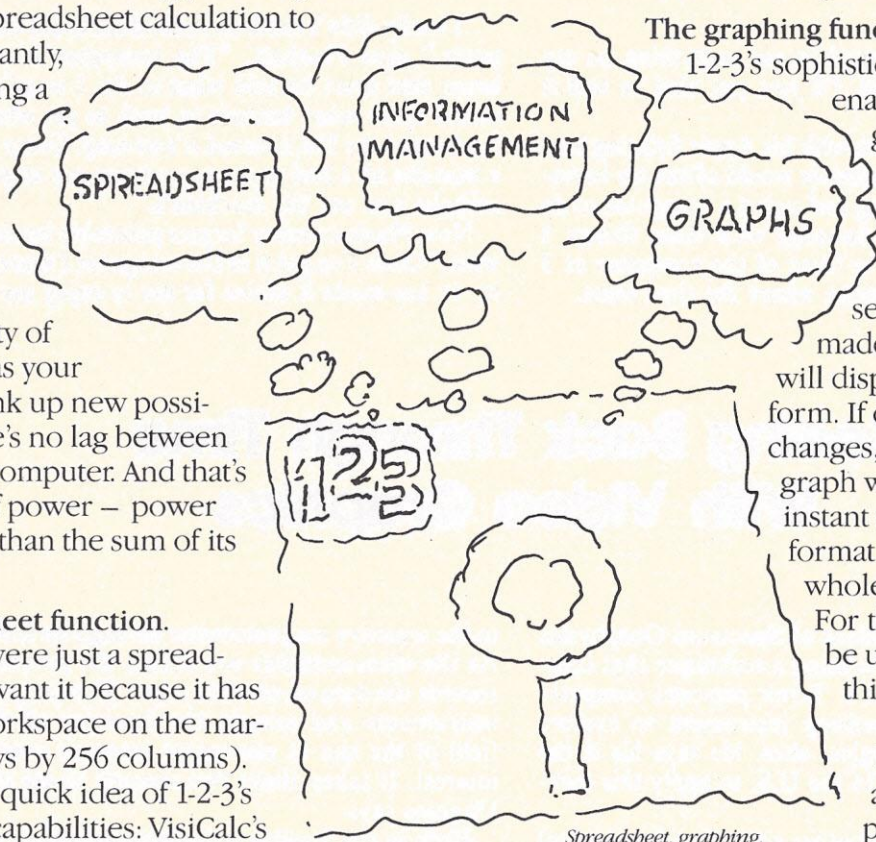 preadsheet calculation to
antly,
ng a
ty of
as your
nk up new possi-
e's no lag between
omputer. And that's
f power – power
than the sum of its
eet function.
were just a spread-
want it because it has
orkspace on the mar-
vs by 256 columns).
quick idea of 1-2-3's
capabilities: VisiCalc's
SPREADSHEET
INFORMATION
MANAGEMENT
GRAPHS
123
Spreadsheet, graphing,
The graphing func
1-2-3's sophistic
ena
g
se
made
will disp
form. If c
changes,
graph w
instant
format
whole
For t
be u
thi
a
p